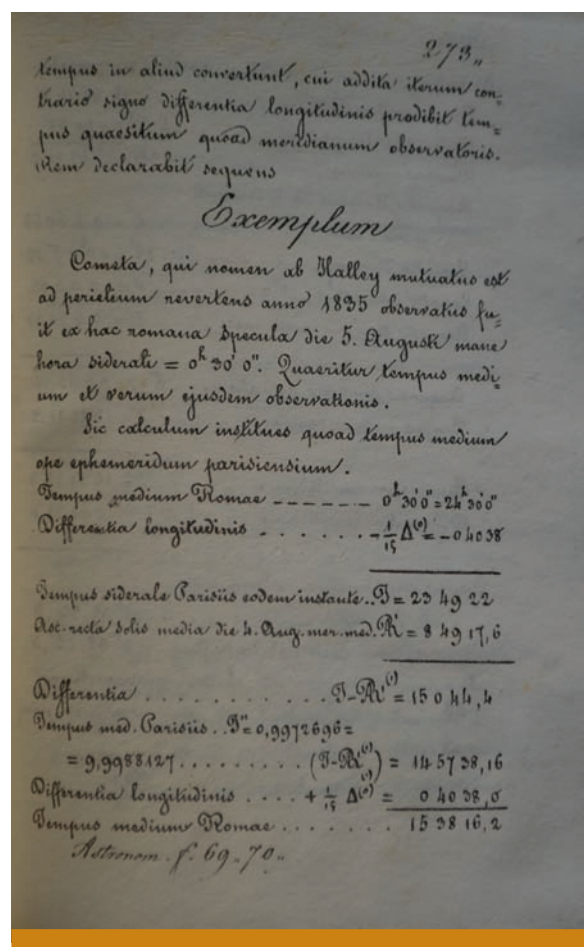 273„
tempus in aliud convertunt, cui addita iterum con=
trario signo differentia longitudinis prodibit tem=
pus quaesitum quoad meridianum observatoris.
Rem declarabit sequens
Exemplum
Cometa, qui nomen ab Halley mutuatus est
ad perielium revertens anno 1835 observatus fu=
it ex hac romana specula die 5. Augusti mane
hora siderali = 0ʰ 30' 0". Quaeritur tempus medi=
um et verum ejusdem observationis.
Sic calculum institues quoad tempus medium
ope ephemeridum parisiensium.
Tempus medium Romae ------- 0ʰ 30' 0" = 24ʰ 30' 0"
Differentia longitudinis . . . . . . - 1/15 Δ⁽ᵒ⁾ = - 0 40 38
Tempus siderale Parisiis eodem instante .. T = 23 49 22
Asc. recta solis media die 4. Aug. mer. med. R' = 8 49 17,6
Differentia . . . . . . . . . . T-R'⁽¹⁾ = 15 0 44,4
Tempus med. Parisiis .. T" = 0,9972696 =
= 9,9988127 . . . . . . . . . (T-R'⁽¹⁾) = 14 57 38,16
Differentia longitudinis . . . . + 1/15 Δ⁽ᵒ⁾ = 0 40 38,0
Tempus medium Romae . . . . . . . 15 38 16,2
Astronom. f. 69 „ 70 „